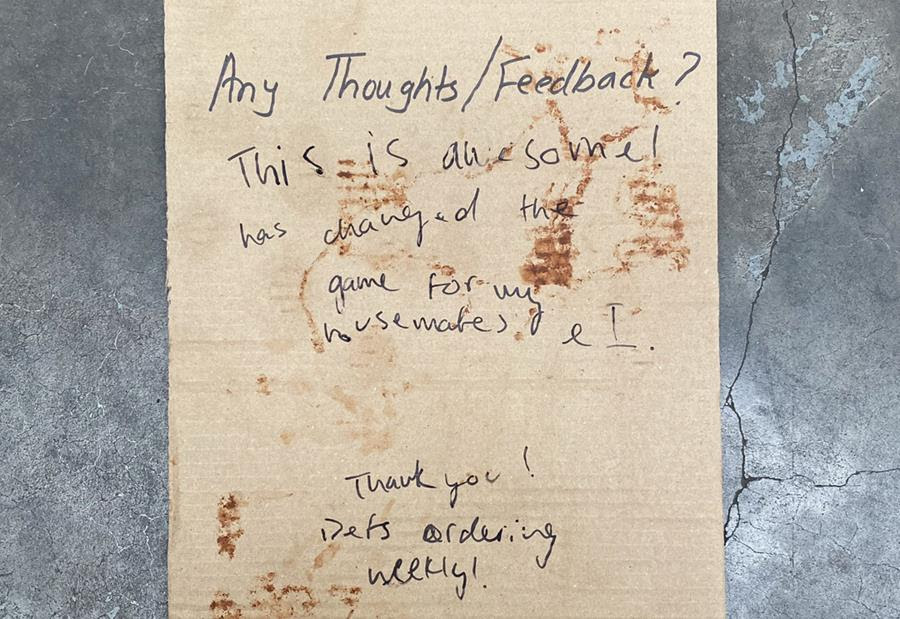 Any Thoughts/Feedback?
This is awesome!
has changed the
game for my
housemates e I.
Thank you!
Defs ordering
weekly!